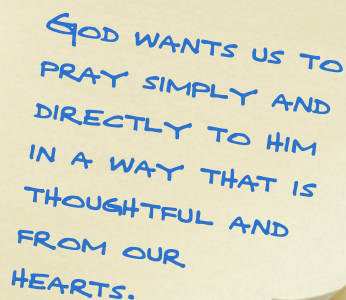 GOD WANTS US TO
PRAY SIMPLY AND
DIRECTLY TO HIM
IN A WAY THAT IS
THOUGHTFUL AND
FROM OUR
HEARTS.